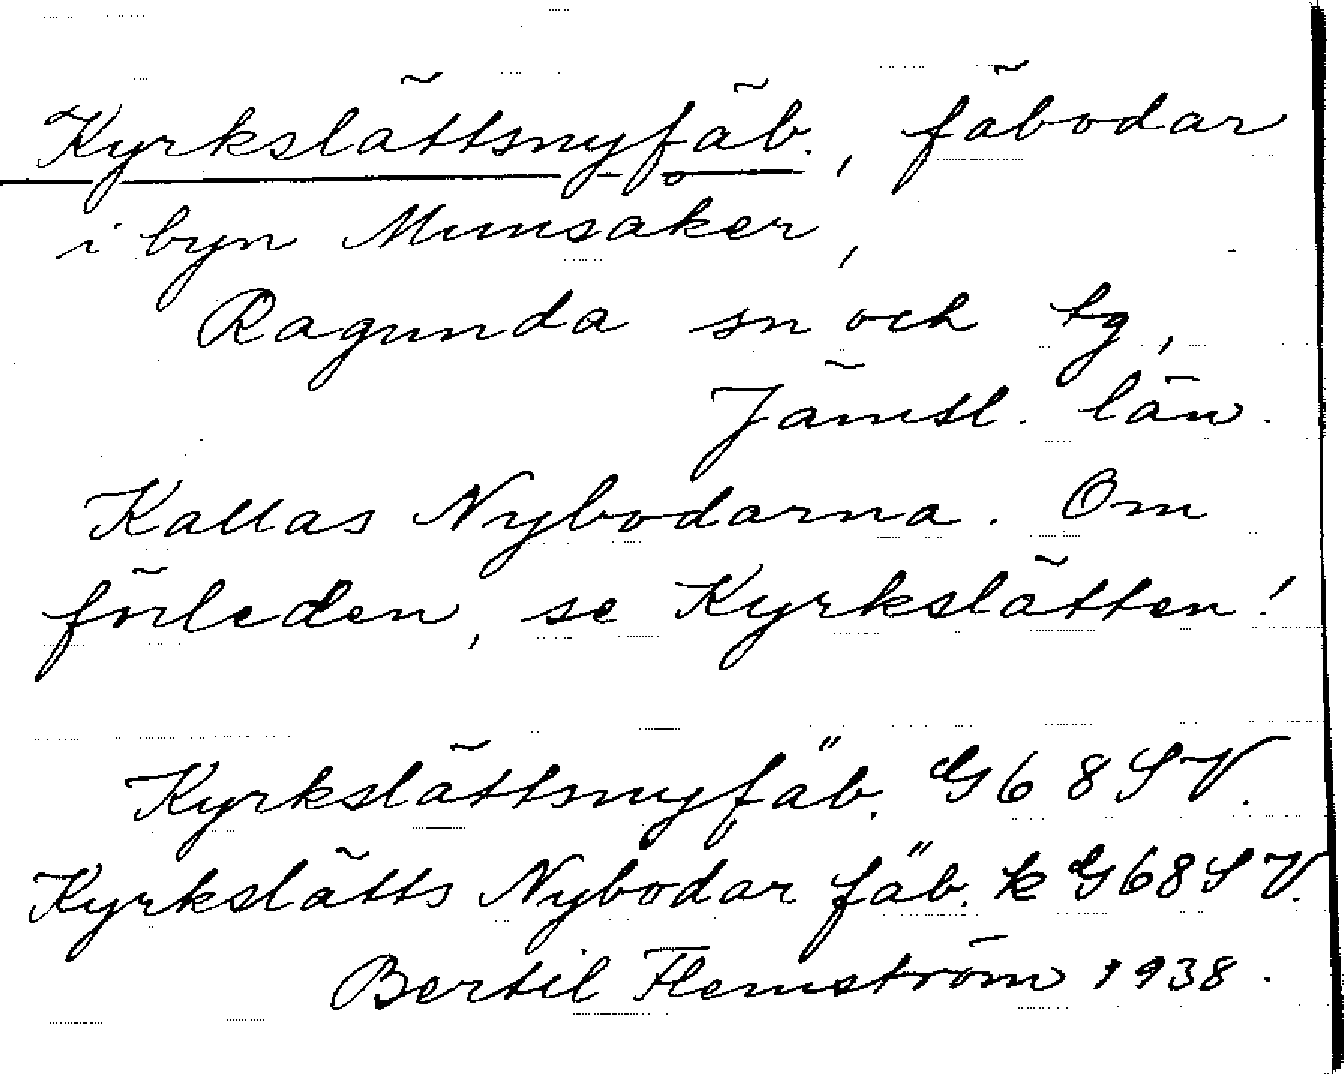 Kyrkslättsnyfäb., fäbodar
i byn Munsåker,
Ragunda sn och tg,
Jämtl. län.
Kallas Nybodarna. Om
förleden, se Kyrkslätten!
Kyrkslättsnyfäb. G68SV.
Kyrkslätts Nybodar fäb. k G68SV.
Bertil Flemström 1938.